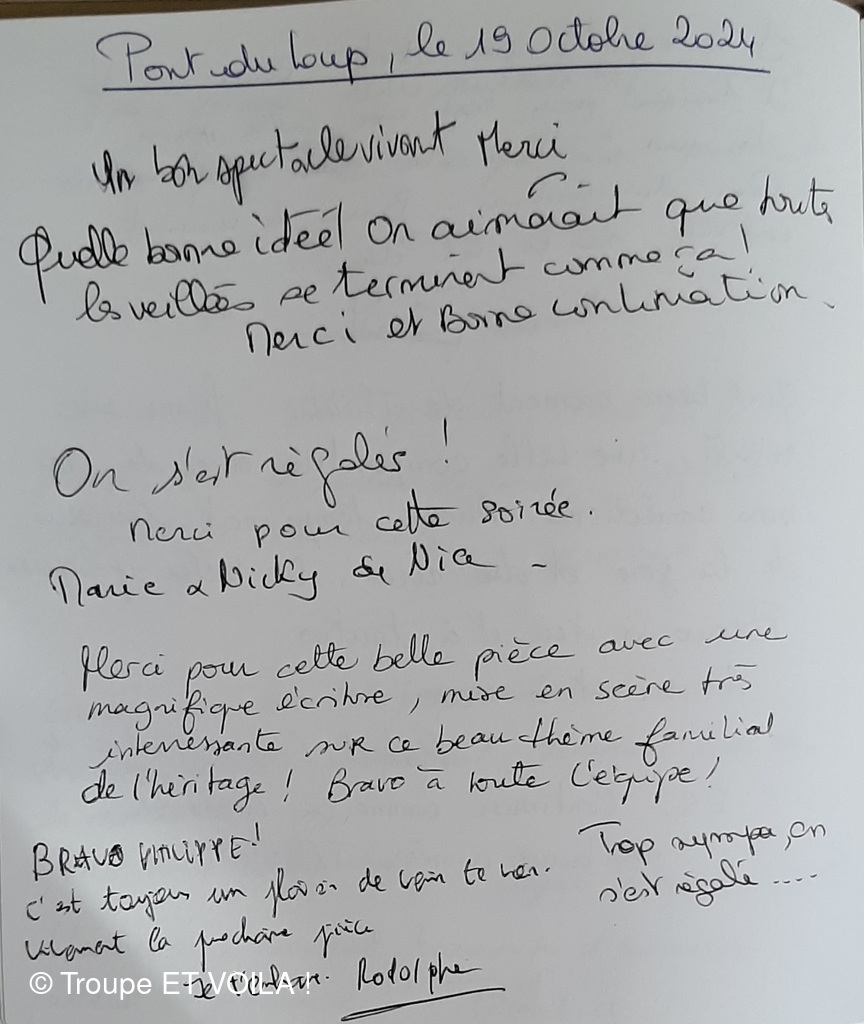 Pont du Loup, le 19 Octobre 2024
Un bon spectacle vivant Merci
Quelle bonne idée! On aimerait que toutes
les veillées se terminent comme ça!
Merci et Bonne continuation.
On s'est régalés !
Merci pour cette soirée.
Marie & Nicky de Nice -
Merci pour cette belle pièce avec une
magnifique écriture, mise en scène très
interressante sur ce beau thème familial
de l'héritage ! Bravo à toute l'équipe !
BRAVO PHILIPPE!
C'est toujours un plaisir de voir te voir.
Vivement la prochaine pièce
Je t'embrasse. Rodolphe
Trop sympa, on
s'est régalé ....
© Troupe ET VOILA !